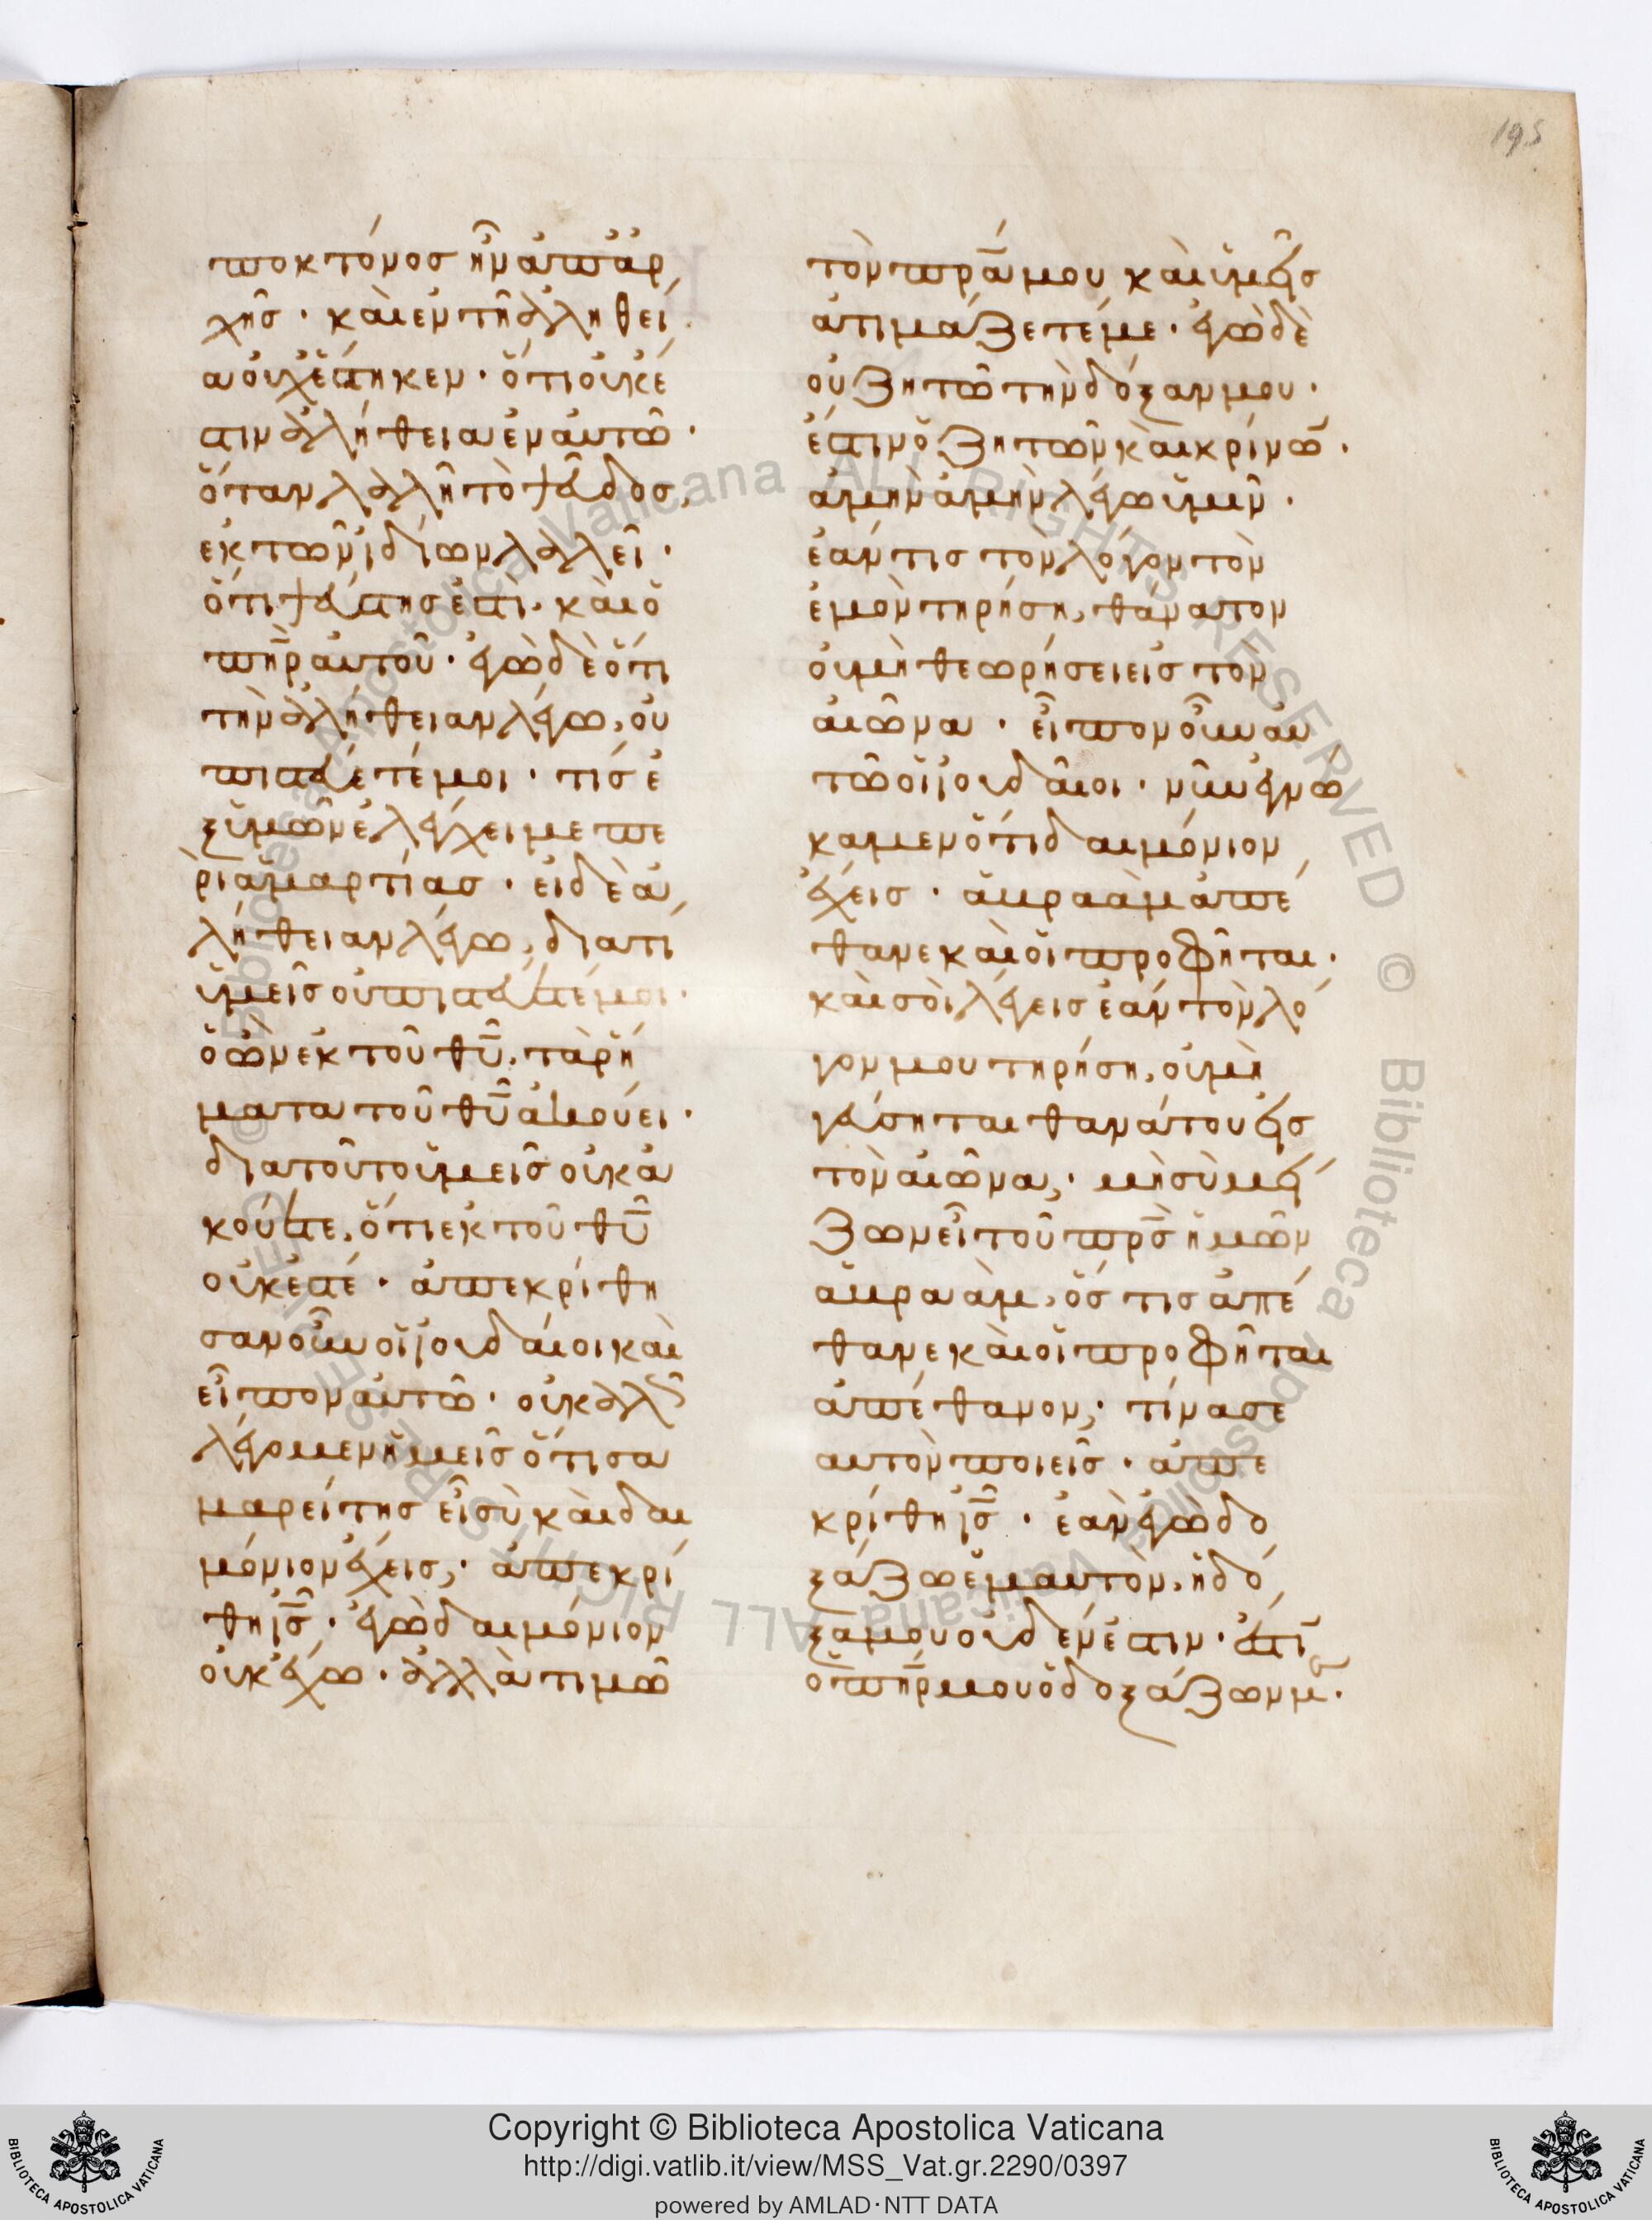 195
ποκτόνος ἦν ἀπ' ἀρ
χῆς · καὶ ἐν τῆ ἀληθεί
α οὐχ ἕστηκεν · ὅτι οὐκ ἔ
στιν ἀλήθεια ἐν αὐτῶ ·
ὅταν λαλῆ τὸ ψεῦδος,
ἐκ τῶν ἰδίων λαλεῖ ·
ὅτι ψεύστης ἐστὶ · καὶ ὁ
πηρ αὐτοῦ · ἐγὼ δὲ ὅτι
τὴν ἀλήθειαν λέγω, οὐ
πιστεύετέ μοι · τίς ἐ
ξ ὑμῶν ἐλέγχει με πε
ρὶ ἁμαρτίας · εἰ δὲ ἀ
λήθειαν λέγω, διατί
ὑμεῖς οὐ πιστεύετέ μοι ·
ὁ ὢν ἐκ τοῦ θυ, τὰ ῥή
ματα τοῦ θυ ἀκούει ·
διατοῦτο ὑμεῖς οὐκ ἀ
κούετε, ὅτι ἐκ τοῦ θυ
οὐκ ἐστέ · ἀπεκρίθη
σαν οὖν οἱ ἰουδαῖοι καὶ
εἶπον αὐτῶ · οὐ καλῶ
λέγομεν ἡμεῖς ὅτι σα
μαρείτης εἶ σὺ καὶ δαι
μόνιον ἔχεις; ἀπεκρί
θη ις · ἐγὼ δαιμόνιον
οὐκ ἔχω · ἀλλὰ τιμῶ
τὸν πρα μου καὶ ὑμεῖς
ἀτιμάζετέ με · ἐγὼ δὲ
οὐ ζητῶ τὴν δόξαν μου ·
ἔστιν ὁ ζητῶν καὶ κρίνων ·
ἀμὴν ἀμὴν λέγω ὑμῖν ·
ἐάν τις τὸν λόγον τὸν
ἐμὸν τηρήση, θάνατον
οὐ μὴ θεωρήσει εἰς τὸν
αἰῶνα · εἶπον οὖν αὐ
τῶ οἱ ἰουδαῖοι · νῦν ἐγνώ
καμεν ὅτι δαιμόνιον
ἔχεις · ἀβραὰμ ἀπέ
θανε καὶ οἱ προφῆται ·
καὶ σὺ λέγεις ἐάν τὸν λό
γον μου τηρήση, οὐ μὴ
γεύσηται θανάτου εἰς
τὸν αἰῶνα; · μὴ σὺ μεί
ζων εἶ τοῦ πρς ἡμῶν
ἀβραάμ, ὅς τις ἀπέ
θανε καὶ οἱ προφῆται
ἀπέθανον; · τίνα σε
αυτὸν ποιεῖς · ἀπε
κρίθη ις · ἐὰν ἐγὼ δο
ξάζω ἐμαυτὸν, ἡ δό
ξα μου οὐδέν ἐστιν · ἔστι
ὁ πηρ μου ὁ δοξάζων με ·
Biblioteca Apostolica Vaticana ALL RIGHTS RESERVED ©
Copyright © Biblioteca Apostolica Vaticana
http://digi.vatlib.it/view/MSS_Vat.gr.2290/0397
powered by AMLAD·NTT DATA
BIBLIOTECA APOSTOLICA VATICANA
BIBLIOTECA APOSTOLICA VATICANA